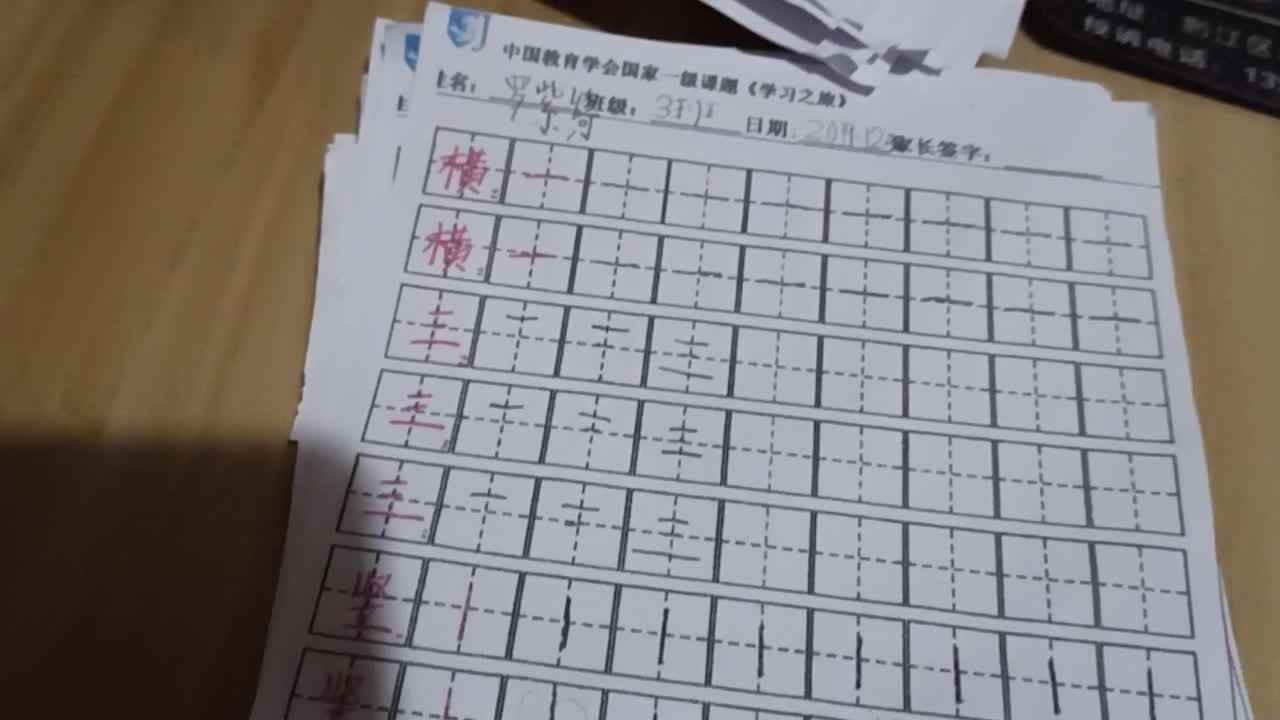 地址：黔江区
投诉电话：13
中国教育学会国家一级课题《学习之旅》
姓名： 班级：3班 日期： 家长签字：
横 一 一 一 一 一 一 一 一
横 一 一 一 一 一 一 一 一
三 二 二 三
三 二 二 三
三 二 二 三
竖 丨 丨 丨 丨 丨 丨 丨 丨
竖 丨